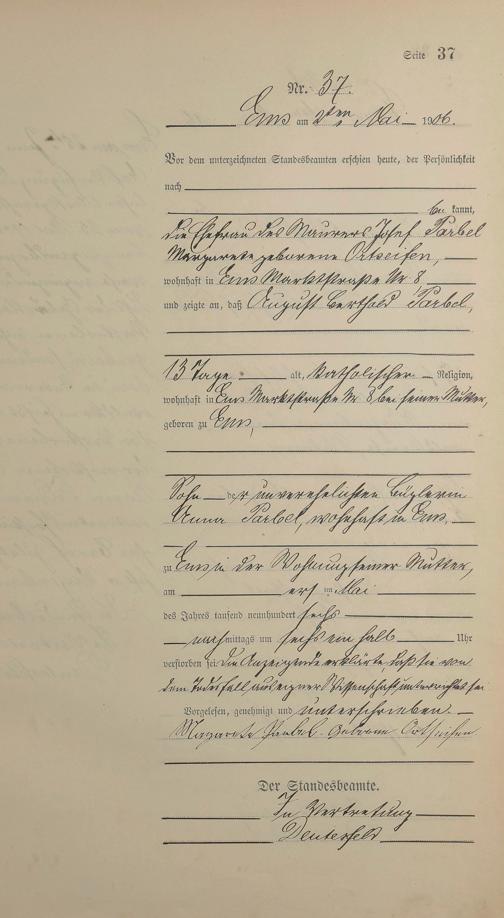 Seite 37
Nr. 37.
Ems am 2ten Mai 1906.
Vor dem unterzeichneten Standesbeamten erschien heute, der Persönlichkeit
nach
be kannt,
die Ehefrau des Maurers Josef Parbel
Margarete geborene Ortseifen,
wohnhaft in Ems Marktstraße Nr 8
und zeigte an, daß August Berthold Parbel,
13 Tage alt, katholischer Religion,
wohnhaft in Ems Marktstraße Nr 8 bei seiner Mutter,
geboren zu Ems,
Sohn der unverehelichten Büglerin
Anna Parbel, wohnhaft in Ems,
zu Ems in der Wohnung seiner Mutter,
am ersten Mai
des Jahres tausend neunhundert sechs
nachmittags um sechs ein halb Uhr
verstorben sei. Die Anzeigende erklärte, daß sie von
dem Todesfall aus eigner Wissenschaft unterrichtet sei
Vorgelesen, genehmigt und unterschrieben.
Magarete Parbel geborene Ortseifen
Der Standesbeamte.
In Vertretung